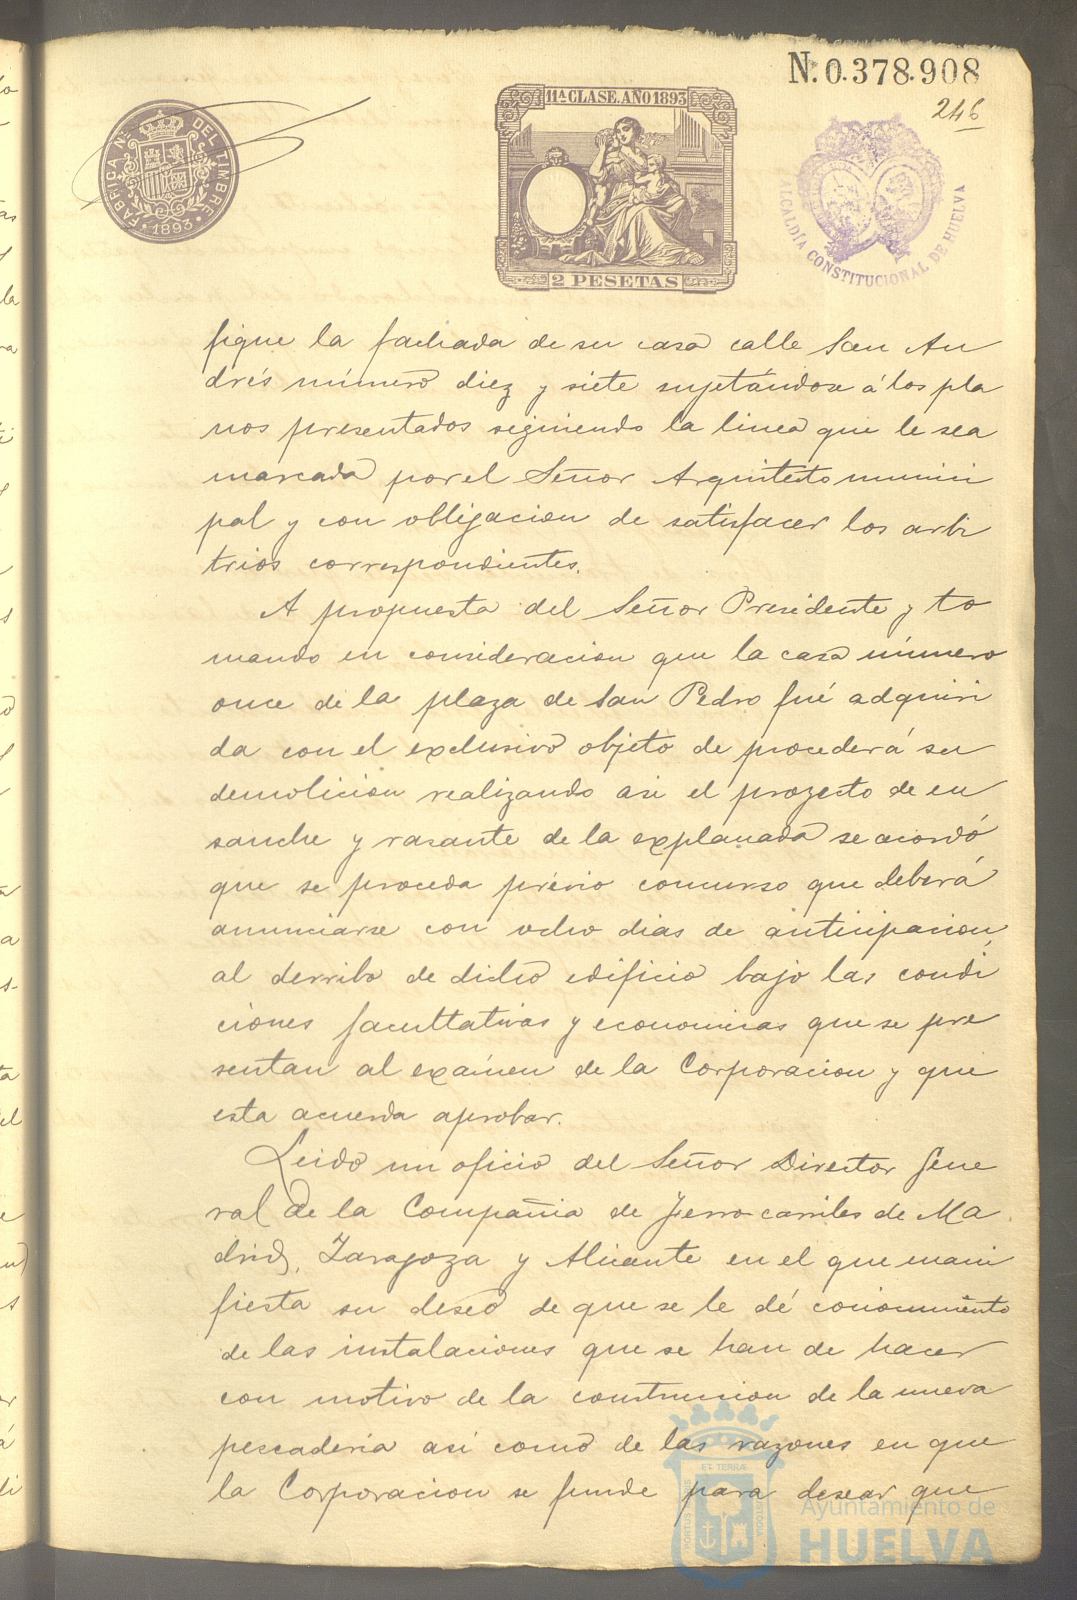 N. 0.378.908
246
11ª CLASE. AÑO 1893
FABRICA NAL DEL TIMBRE
1893
2 PESETAS
ALCALDÍA CONSTITUCIONAL DE HUELVA
fique la fachada de su casa calle San An
drés número diez y siete sujetándose á los pla
nos presentados siguiendo la linea que le sea
marcada por el Señor Arquitecto munici
pal y con obligacion de satisfacer los arbi
trios correspondientes.
A propuesta del Señor Presidente y to
mando en consideracion que la casa número
once de la plaza de San Pedro fué adquiri
da con el exclusivo objeto de proceder á su
demolicion realizando asi el proyecto de en
sanche y rasante de la explanada se acordó
que se proceda prévio concurso que deberá
anunciarse con ocho dias de anticipacion,
al derribo de dicho edificio bajo las condi
ciones facultativas y economicas que se pre
sentan al exámen de la Corporacion y que
esta acuerda aprobar.
Leido un oficio del Señor Director Gene
ral de la Compañia de Ferro carriles de Ma
drid, Zaragoza y Alicante en el que mani
fiesta su deseo de que se le dé conocimiento
de las instalaciones que se han de hacer
con motivo de la construccion de la nueva
pescaderia así como de las razones en que
la Corporacion se funde para desear que
PORTUS MARIS ET TERRÆ CUSTODIA
Ayuntamiento de
HUELVA